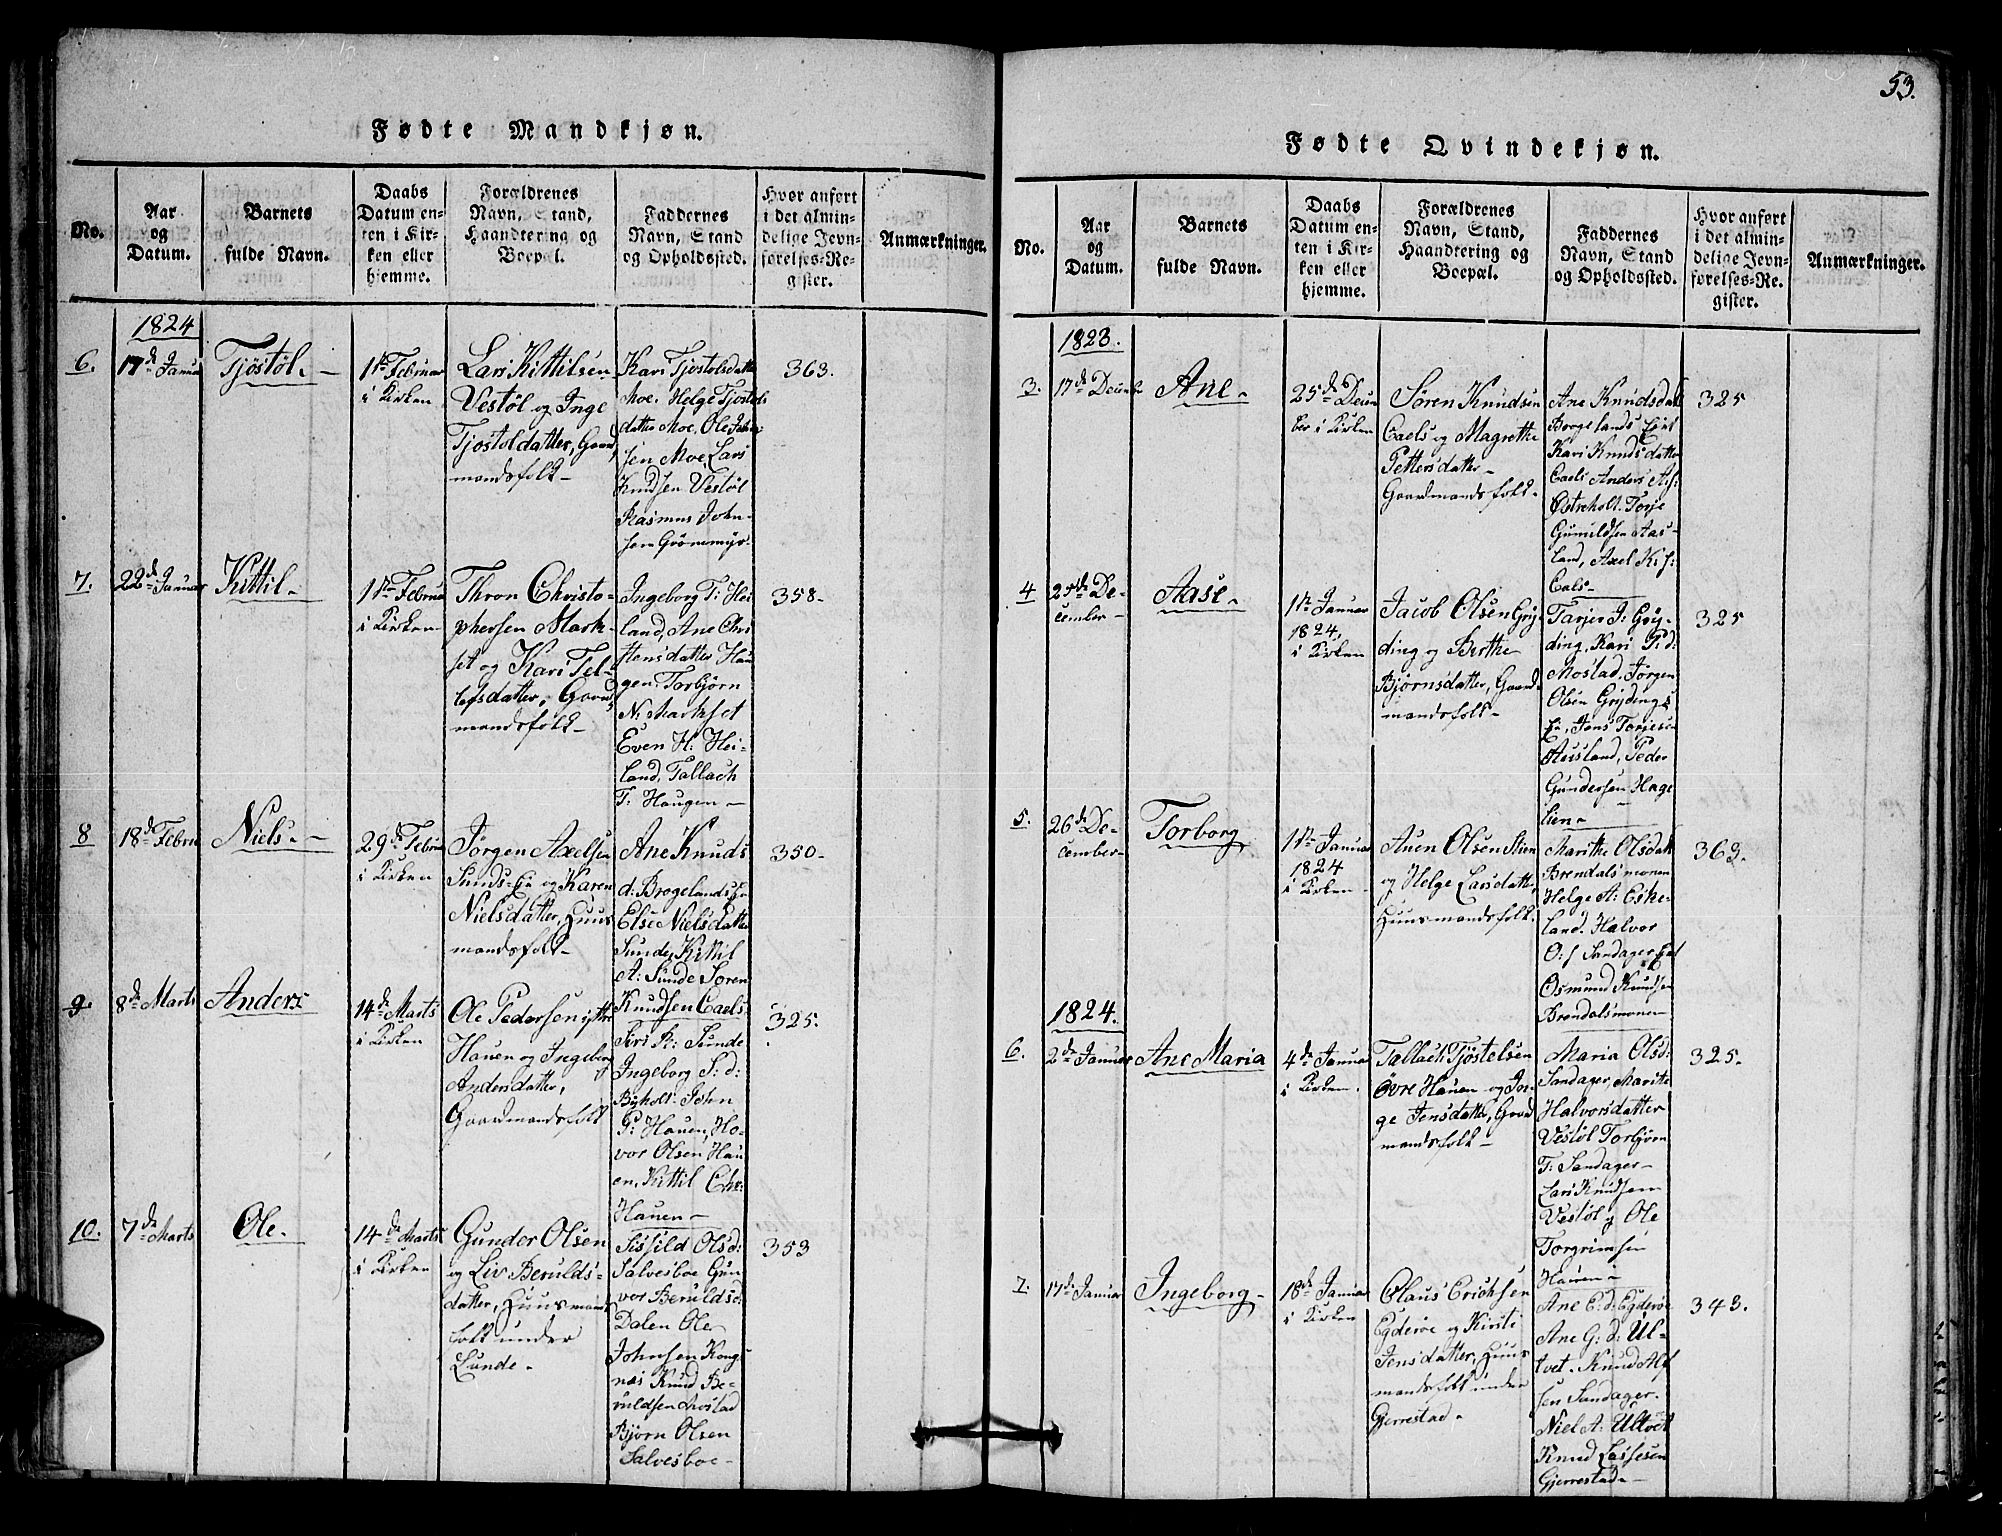 53.
Fødte Mandkjøn.
No.
Aar
og
Datum.
Barnets
fulde Navn.
Daabs
Datum en-
ten i Kir-
ken eller
hjemme.
Forældrenes
Navn, Stand,
Haandtering og
Boepæl.
Faddernes
Navn, Stand
og Opholdssted.
Hvor anført
i det almin-
delige Jevn-
førelses-Re-
gister.
Anmærkninger.
1824
6.
17de Janua
Tjøstøl.-
1ste Februar
i Kirken
Lars Kittilsen
Vestøl og Inge
Tjostoldatter, Gaard
mandsfolk-
Kari Tjostolsdatte
Moe. Helge Tjostols
datter Moe, Ole John
sen Moe, Lars
Knudsen Vestøl
Rasmus John-
sen Grönemyr-
363.
7.
22de Januar
Kittil-
1ste Februa
i Kirken-
Thron Christo-
phersen Mark-
set og Kari Tel-
lefsdatter, Gaard
mandsfolk-
Ingeborg T: Hei-
land, Ane Chri
stensdatter Hau
gen. Torbjörn
N: Markset
Even H: Hei-
land, Tallach
T: Haugen-
358-
8
18de Febru
Niels.-
29de Febru
i Kirken
Jörgen Axelsen
Sunds-Eje og Karen
Nielsdatter, Huus
mandsfolk-
Ane Knuds
d: Brogelands Eje
Else Nielsdatter
Sunde, Kittil
A: Sunde Soren
Knudsen Caels.
350-
9.
8de Marts
Anders
14de Marts
i Kirken
Ole Pedersen ytre
Hauen og Ingeborg
Andersdatter,
Gaardmandsfolk
Siri R: Sunde
Ingeborg S: d:
Byholt. John
P: Hauen, Ho-
vor Olsen Hau
en, Kittil Chr:
Hauen-
325.
10.
7de Marts
Ole.
14de Marts
i Kirken
Gunder Olsen
og Liv Berulds-
datter, Huusmands
folk under
Lunde-
Sissild Olsd:
Salvesboe Gun
vor Beruldsd:
Dalen Ole
Johnsen Kongs
næs Knud Be-
ruldsen Mostad
Björn Olsen
Salvesboe-
353
Fødte Qvindekjøn.
No.
Aar
og
Datum.
Barnets
fulde Navn.
Daabs
Datum en-
ten i Kir-
ken eller
hjemme.
Forældrenes
Navn, Stand,
Haandtering og
Boepæl.
Faddernes
Navn, Stand
og Opholdssted.
Hvor anført
i det almin-
delige Jevn-
førelses-Re-
gister.
Anmærkninger.
1823.
3.
17de Decemb
Ane-
25de Decem
ber i Kirken
Søren Knudsen
Caels og Magrethe
Pettersdatter-
Gaardmandsfolk.
Ane Knudsdatt
Brogelands Ejet
Kari Knudsdatter
Caels Anders As:
Østreholt. Torje
Gunuldsen Aas-
land, Axel K: s:
Caels-
325
4
25de De-
cember-
Aase-
1ste Januar
1824.
i Kirken
Jacob Olsen Gry
ding og Berthe
Bjørnsdatter, Gaard
mandsfolk-
Tarjer J: Gry-
ding, Kari P: d:
Mostad, Jørgen
Olsen Grydings
Eje, Jens Torjesen
Ausland, Peder
Gundersen Hage
lien-
325
5.
26de De-
cember-
Torborg
1ste Januar
1824
i Kirken-
Auen Olsen Stien
og Helge Larsdatter,
Huusmandsfolk.
Marithe Olsdatt
Brendalsmonen
Helge A: Eske-
land. Halvor
O: s Sandager Ejet
Osmund Knudsen
Brendalsmonen
363.
1824.
6.
2de Januar
Ane Maria
4de Januar
i Kirken.
Tallach Tjöstelsen
Övre Hauen og In-
ge Jensdatter, Gaard
mandsfolk-
Maria Olsd:
Sandager, Marithe
Halvorsdatter
Vestøl Torbjørn
T: Sandager-
Lars Knudsen
Vestøl og Ole
Torgrimsen
Hauen-
325.
7.
17de Januar
Ingeborg-
18de Januar
i Kirken
Claus Erichsen
Egderøe og Kirsti
Jensdatter, Huus
mandsfolk under
Gjerrestad-
Ane E: d: Egderøe
Ane G: d: Ul-
tvet. Knud Alf
sen Sandager.
Niel A: Ultvet
Knud Lassesen
Gjerrestad-
343.